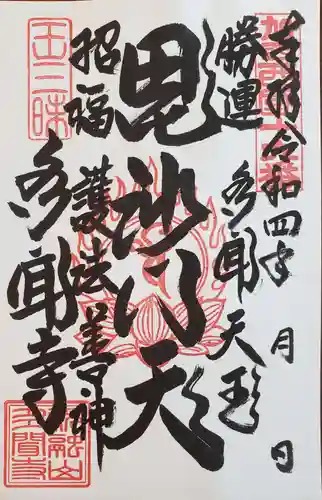 奉拝 令和四年 月 日
勝運 多聞天王
毘沙門天
招福 護法善神
多聞寺
王三昧